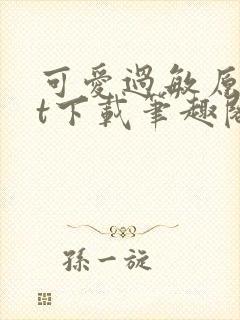 可愛過敏原
t下載筆趣閣
孫一旋